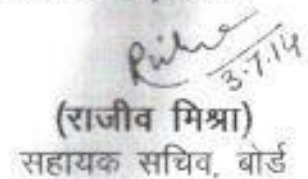 3.7.14
(राजीव मिश्रा)
सहायक सचिव, बोर्ड